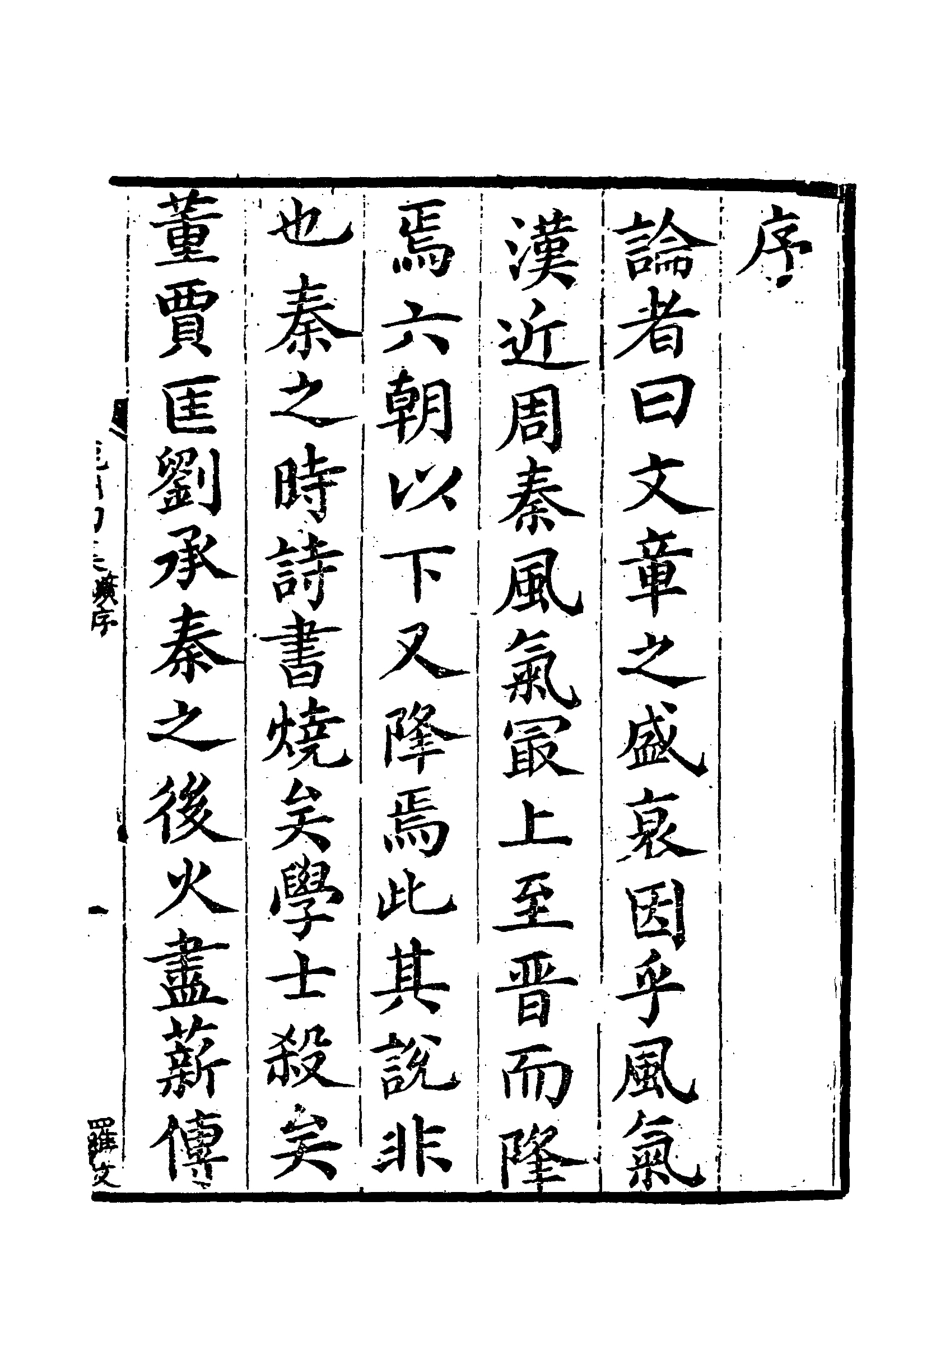 序
論者曰文章之盛衰因乎風氣
漢近周秦風氣冣上至晋而隆
焉六朝以下又隆焉此其說非
也秦之時詩書燒矣學士殺矣
董賈匡劉承秦之後火盡薪傳
序
一
羅文